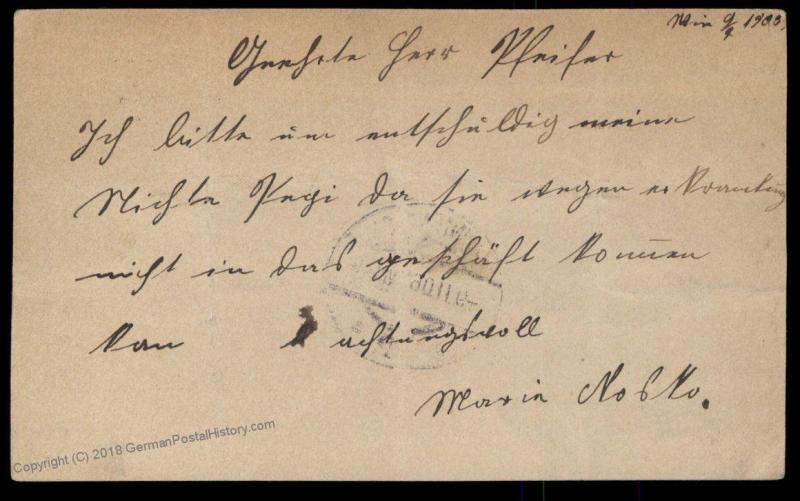 Wien 9/9 1903.
Geehrte Herr Pfeifer
Ich bitte um entschuldig meine
Nichte Pepi da sie wegen erkrankung
nicht in das geschäft kommen
kan achtungsvoll
Marie Nosko.
Copyright (C) 2018 GermanPostalHistory.com